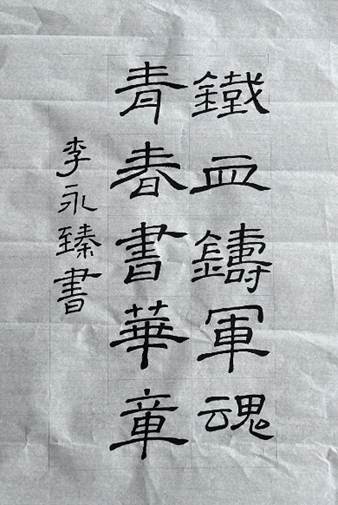 鐵血鑄軍魂
青春書華章
李永臻書